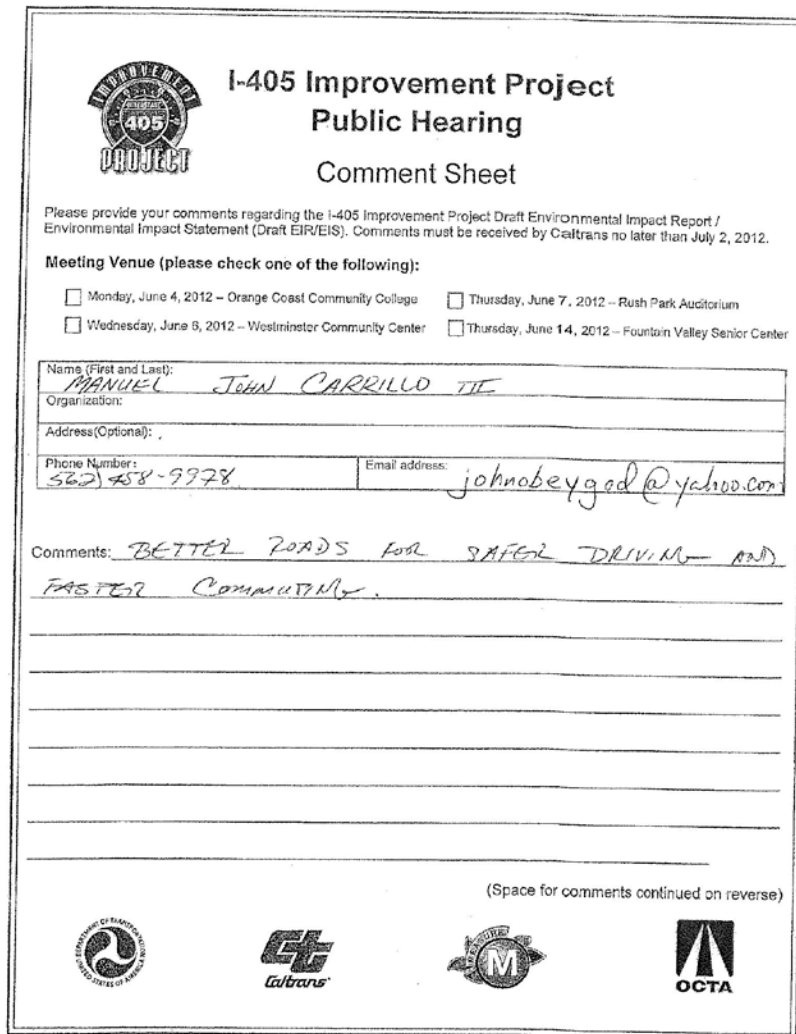 IMPROVEMENT
INTERSTATE
405
PROJECT
I-405 Improvement Project
Public Hearing
Comment Sheet
Please provide your comments regarding the I-405 Improvement Project Draft Environmental Impact Report /
Environmental Impact Statement (Draft EIR/EIS). Comments must be received by Caltrans no later than July 2, 2012.
Meeting Venue (please check one of the following):
Monday, June 4, 2012 – Orange Coast Community College
Thursday, June 7, 2012 – Rush Park Auditorium
Wednesday, June 6, 2012 – Westminster Community Center
Thursday, June 14, 2012 – Fountain Valley Senior Center
Name (First and Last):
MANUEL JOHN CARRILLO III
Organization:
Address(Optional):
Phone Number:
562) 458-9978
Email address:
johnobeygod@yahoo.com
Comments: BETTER ROADS FOR SAFER DRIVING AND
FASTER COMMUTING.
(Space for comments continued on reverse)
DEPARTMENT OF TRANSPORTATION
UNITED STATES OF AMERICA
Ct
Caltrans
MEASURE
M
OCTA